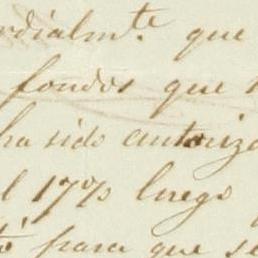 rdialmte. que
fondos que
ha sido autoriza
l 17 % luego
tó para que se